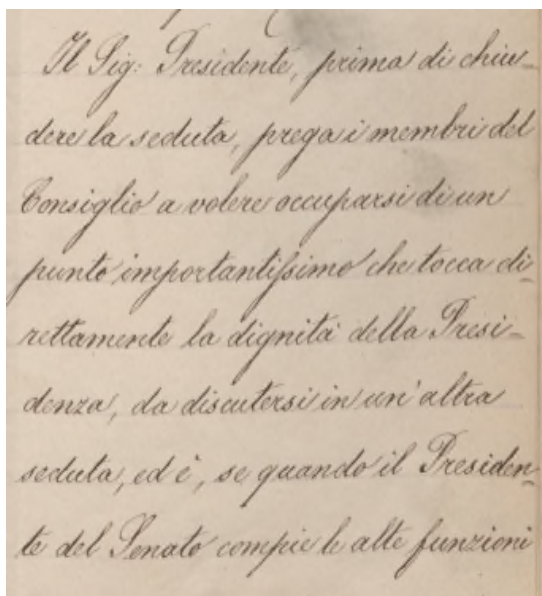 Il Sig: Presidente, prima di chiu-
dere la seduta, prega i membri del
Consiglio a volere occuparsi di un
punto importantissimo che tocca di-
rettamente la dignità della Presi-
denza, da discutersi in un' altra
seduta, ed è, se quando il Presiden-
te del Senato compie le alte funzioni